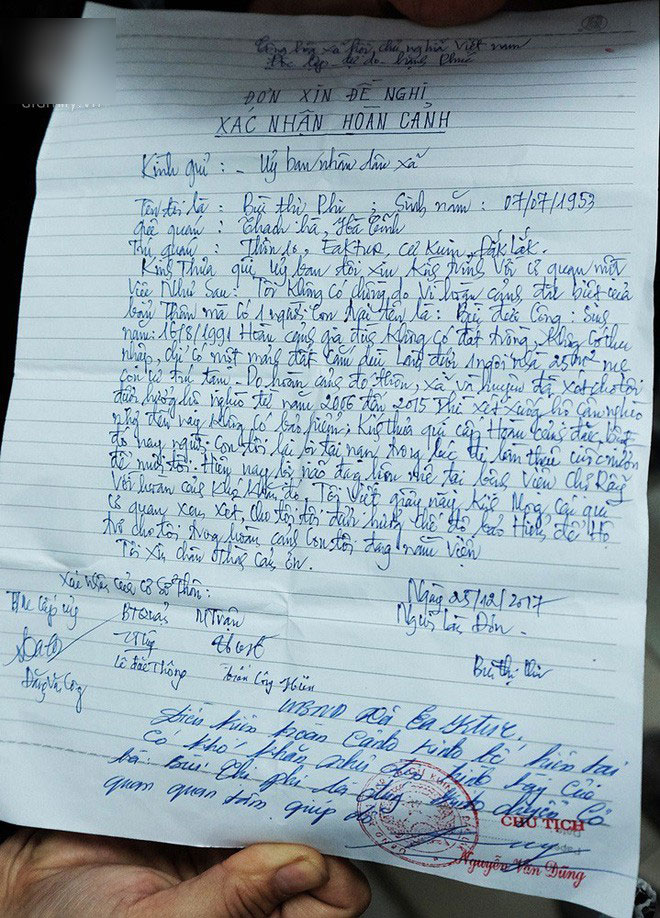 Cộng hòa xã hội chủ nghĩa Việt nam
Độc lập tự do hạnh Phúc
ĐƠN XIN ĐỀ NGHỊ
XÁC NHẬN HOÀN CẢNH
Kính gửi : - Uỷ ban nhân dân xã
Tên tôi là : Bùi thị Phi ; Sinh năm : 07/07/1953
Quê quán : Thạch hà, Hà Tĩnh
Trú quán : Thôn 10, EaKtur, Cư Kuin, Đắk Lắk.
Kính Thưa quí uỷ ban tôi xin Kính trình với cơ quan một
Việc Như Sau : Tôi Không có chồng do Vì hoàn cảnh đặc biệt của
bản Thân mà có 1 người con trai tên là : Bùi đức Công : Sinh
năm: 16/8/1991 Hoàn cảnh gia đình Không có đất trồng, Không có thu
nhập, chỉ có một mảnh đất cắm dùi 1 ngôi nhà 25m² mẹ
con cư trú tạm. Do hoàn cảnh đó thôn, xã và huyện đã xét cho tôi
được hưởng hộ nghèo từ năm 2006 đến 2015 thì xét xuống hộ cận nghèo
đến nay Không có bảo hiểm, Kính thưa quí cấp Hoàn cảnh đặc biệt
đó nay người con tôi lại bị tai nạn trong lúc đi làm thuê cuốc mướn
để nuôi tôi. Hiện nay bị não đang hôn mê tại bệnh viện Chợ Rẫy
Với hoàn cảnh Khó Khăn đó, Tôi Viết giấy này Kính Mong cấp quí
cơ quan xem xét, cho tôi được hưởng chế độ bảo Hiểm để Hỗ
trợ cho tôi trong hoàn cảnh con tôi đang nằm viện
Tôi xin chân thành cảm ơn.
Xác nhận của cơ sở thôn :
Ngày 25/12/2017
Người Làm Đơn.
Bùi thị Phi
Lê đắc Thông
Trần Công Hiền
UBND Xã Ea Ktur.
Điều kiện hoàn cảnh kinh tế hiện tại
có khó khăn như đơn trình bày của
bà: Bùi Thị Phi là đúng
quan quan tâm giúp đỡ
CHỦ TỊCH
Nguyễn Văn Dũng